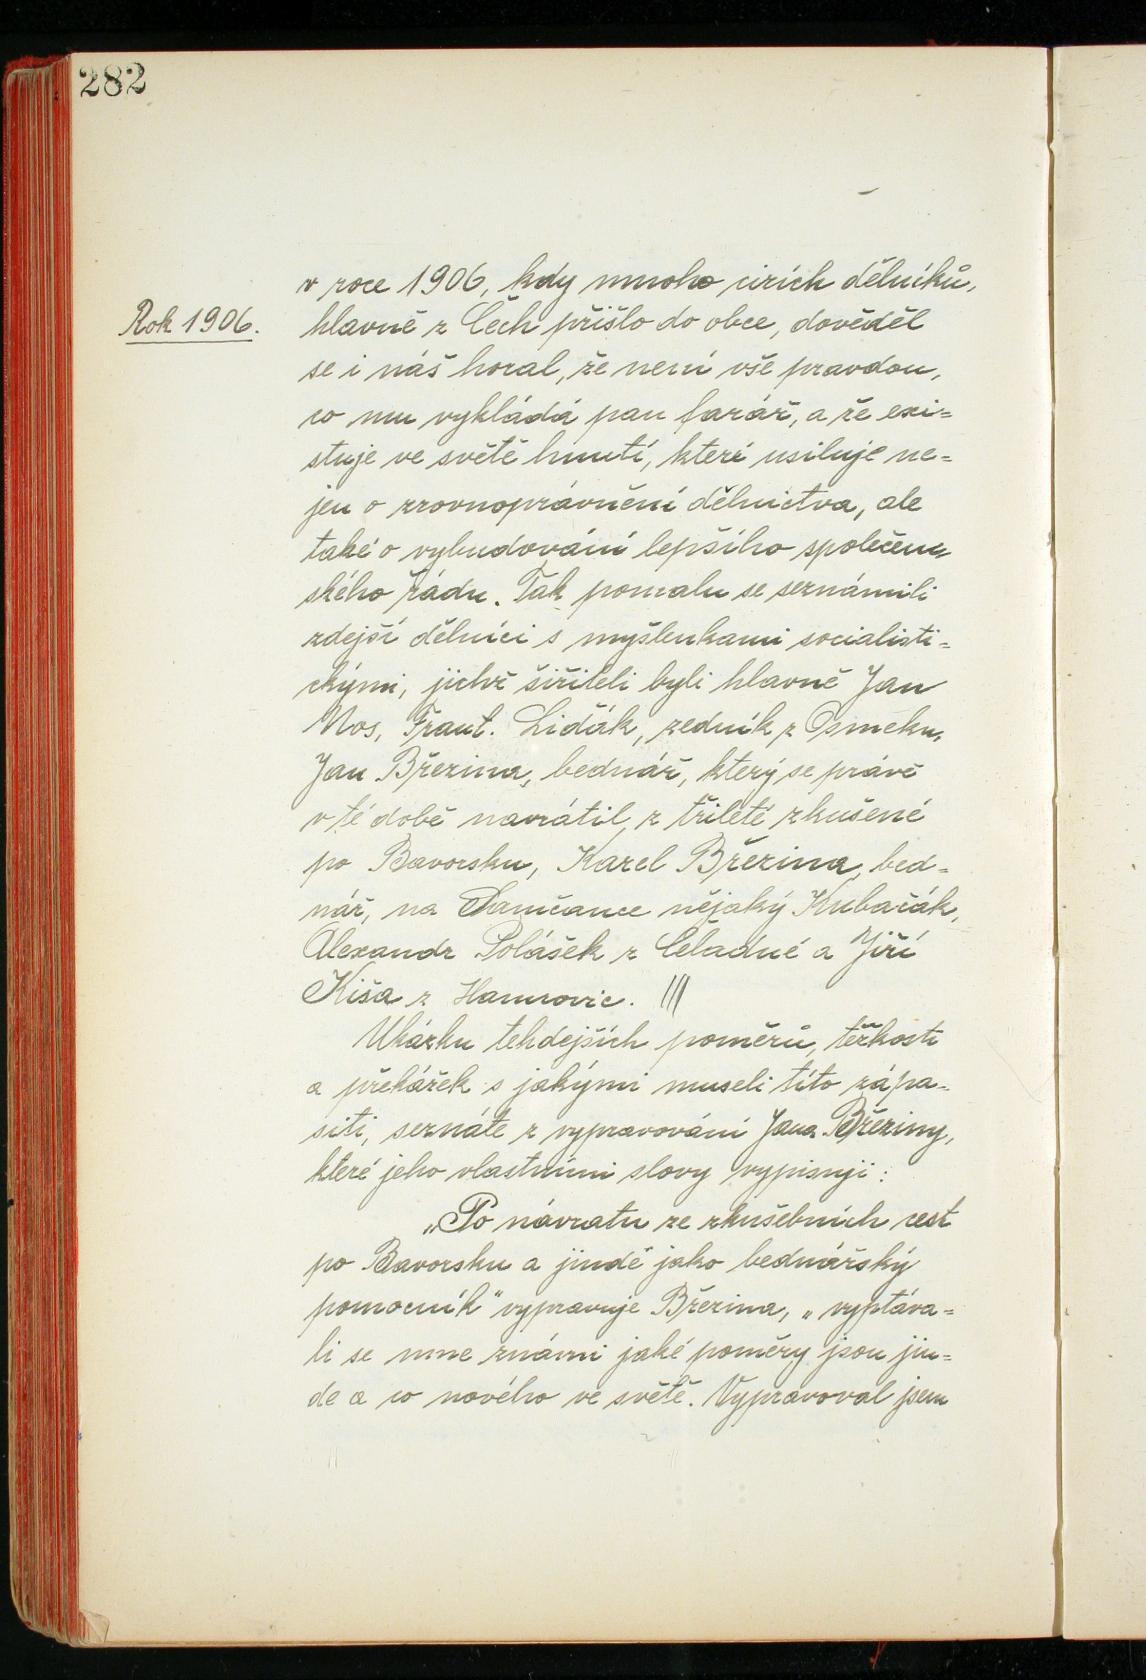 282
v roce 1906, kdy mnoho cizích dělníků,
Rok 1906.
hlavně z Čech přišlo do obce, dověděl
se i náš horal, že není vše pravdou,
co mu vykládá pan farář, a že exi=
stuje ve světě hnutí, které usiluje ne=
jen o zrovnoprávnění dělnictva, ale
také o vybudování lepšího společen
ského řádu. Tak pomalu se seznámili
zdejší dělníci s myšlenkami socialisti=
ckými, jichž šiřiteli byli hlavně Jan
Nos, Frant. Liďák, zedník z Osmeku,
Jan Březina, bednář, který se právě
v té době navrátil z tříleté zkušené
po Bavorsku, Karel Březina, bed=
nář, na Samčance nějaký Kubačák,
Alexandr Polášek z Čeladné a Jiří
Kiša z Hamrovic.
Ukázku tehdejších poměrů, těžkosti
a překážek s jakými museli tito zápa=
siti, seznáte z vypravování Jana Březiny,
které jeho vlastními slovy vypisuji:
„Po návratu ze zkušebních cest
po Bavorsku a jinde jako bednářský
pomocník" vypravuje Březina, „vyptáva=
li se mne známi jaké poměry jsou jin=
de a co nového ve světě. Vypravoval jsem